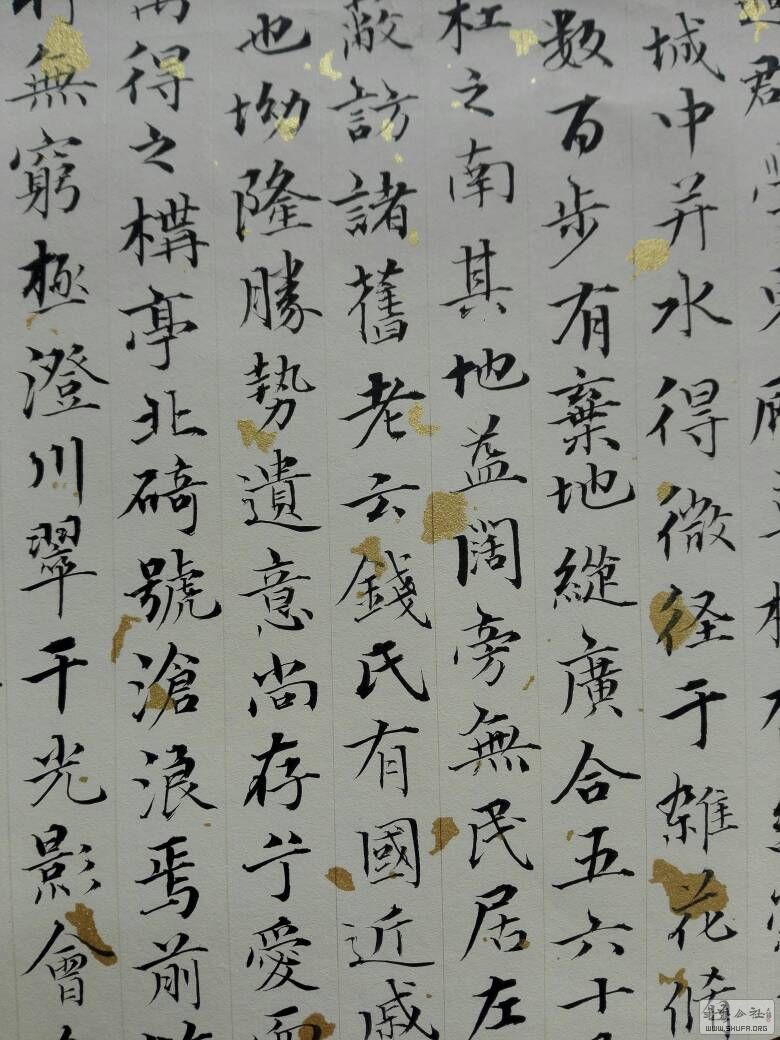 城中并水得微径于雜花脩
数百步有棄地縱廣合五六十
杜之南其地益阔旁無民居左
蔽訪諸舊老云錢氏有國近戚
也坳隆勝勢遺意尚存予愛而
得之構亭北碕號滄浪焉前
無窮極澄川翠干光影會
WWW.SHUFA.ORG